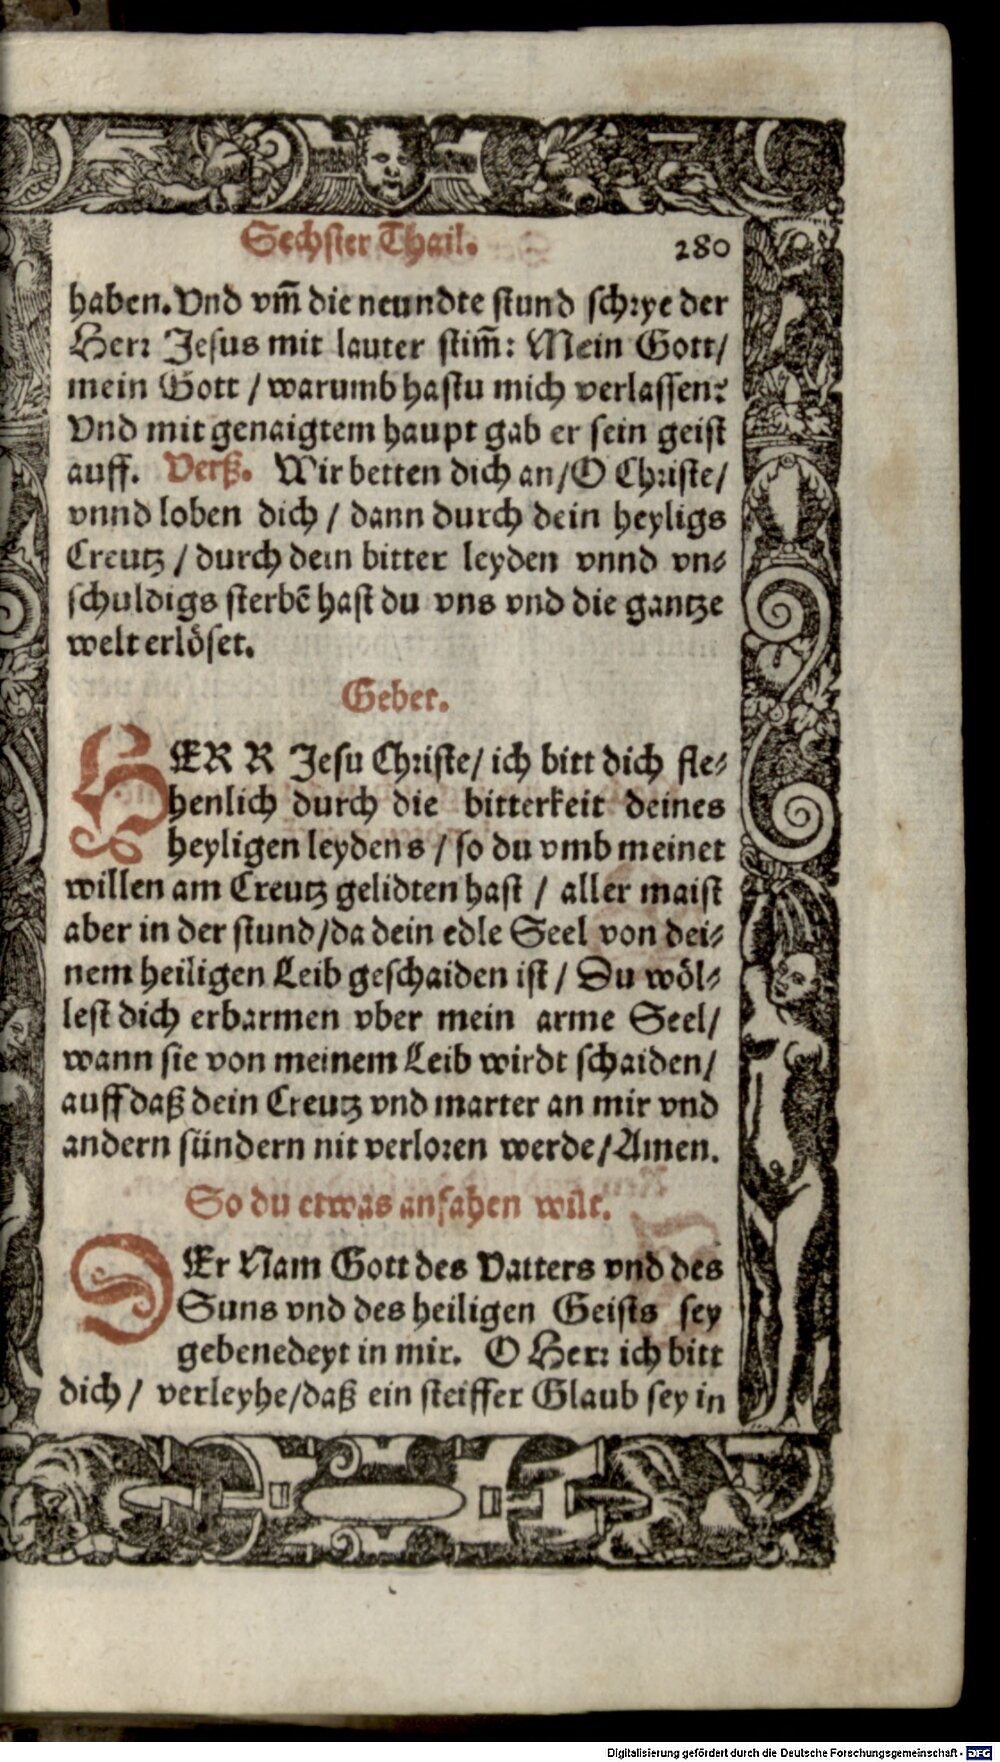 Sechster Thail. 280
haben. Vnd vm̃ die neundte stund schrye der
Herr Jesus mit lauter stim̃: Mein Gott/
mein Gott / warumb hastu mich verlassen?
Vnd mit genaigtem haupt gab er sein geist
auff. Verß. Wir betten dich an/ O Christe/
vnnd loben dich / dann durch dein heyligs
Creutz / durch dein bitter leyden vnnd vn⸗
schuldigs sterbẽ hast du vns vnd die gantze
welt erlöset.
Gebet.
HERR Jesu Christe/ ich bitt dich fle⸗
henlich durch die bitterkeit deines
heyligen leydens / so du vmb meinet
willen am Creutz gelidten hast / aller maist
aber in der stund/ da dein edle Seel von dei⸗
nem heiligen Leib geschaiden ist / Du wöl⸗
lest dich erbarmen vber mein arme Seel/
wann sie von meinem Leib wirdt schaiden/
auff daß dein Creutz vnd marter an mir vnd
andern sündern nit verloren werde/ Amen.
So du etwas anfahen wilt.
DEr Nam Gott des Vatters vnd des
Suns vnd des heiligen Geists sey
gebenedeyt in mir. O Herr ich bitt
dich / verleyhe/ daß ein steiffer Glaub sey in
Digitalisierung gefördert durch die Deutsche Forschungsgemeinschaft - DFG